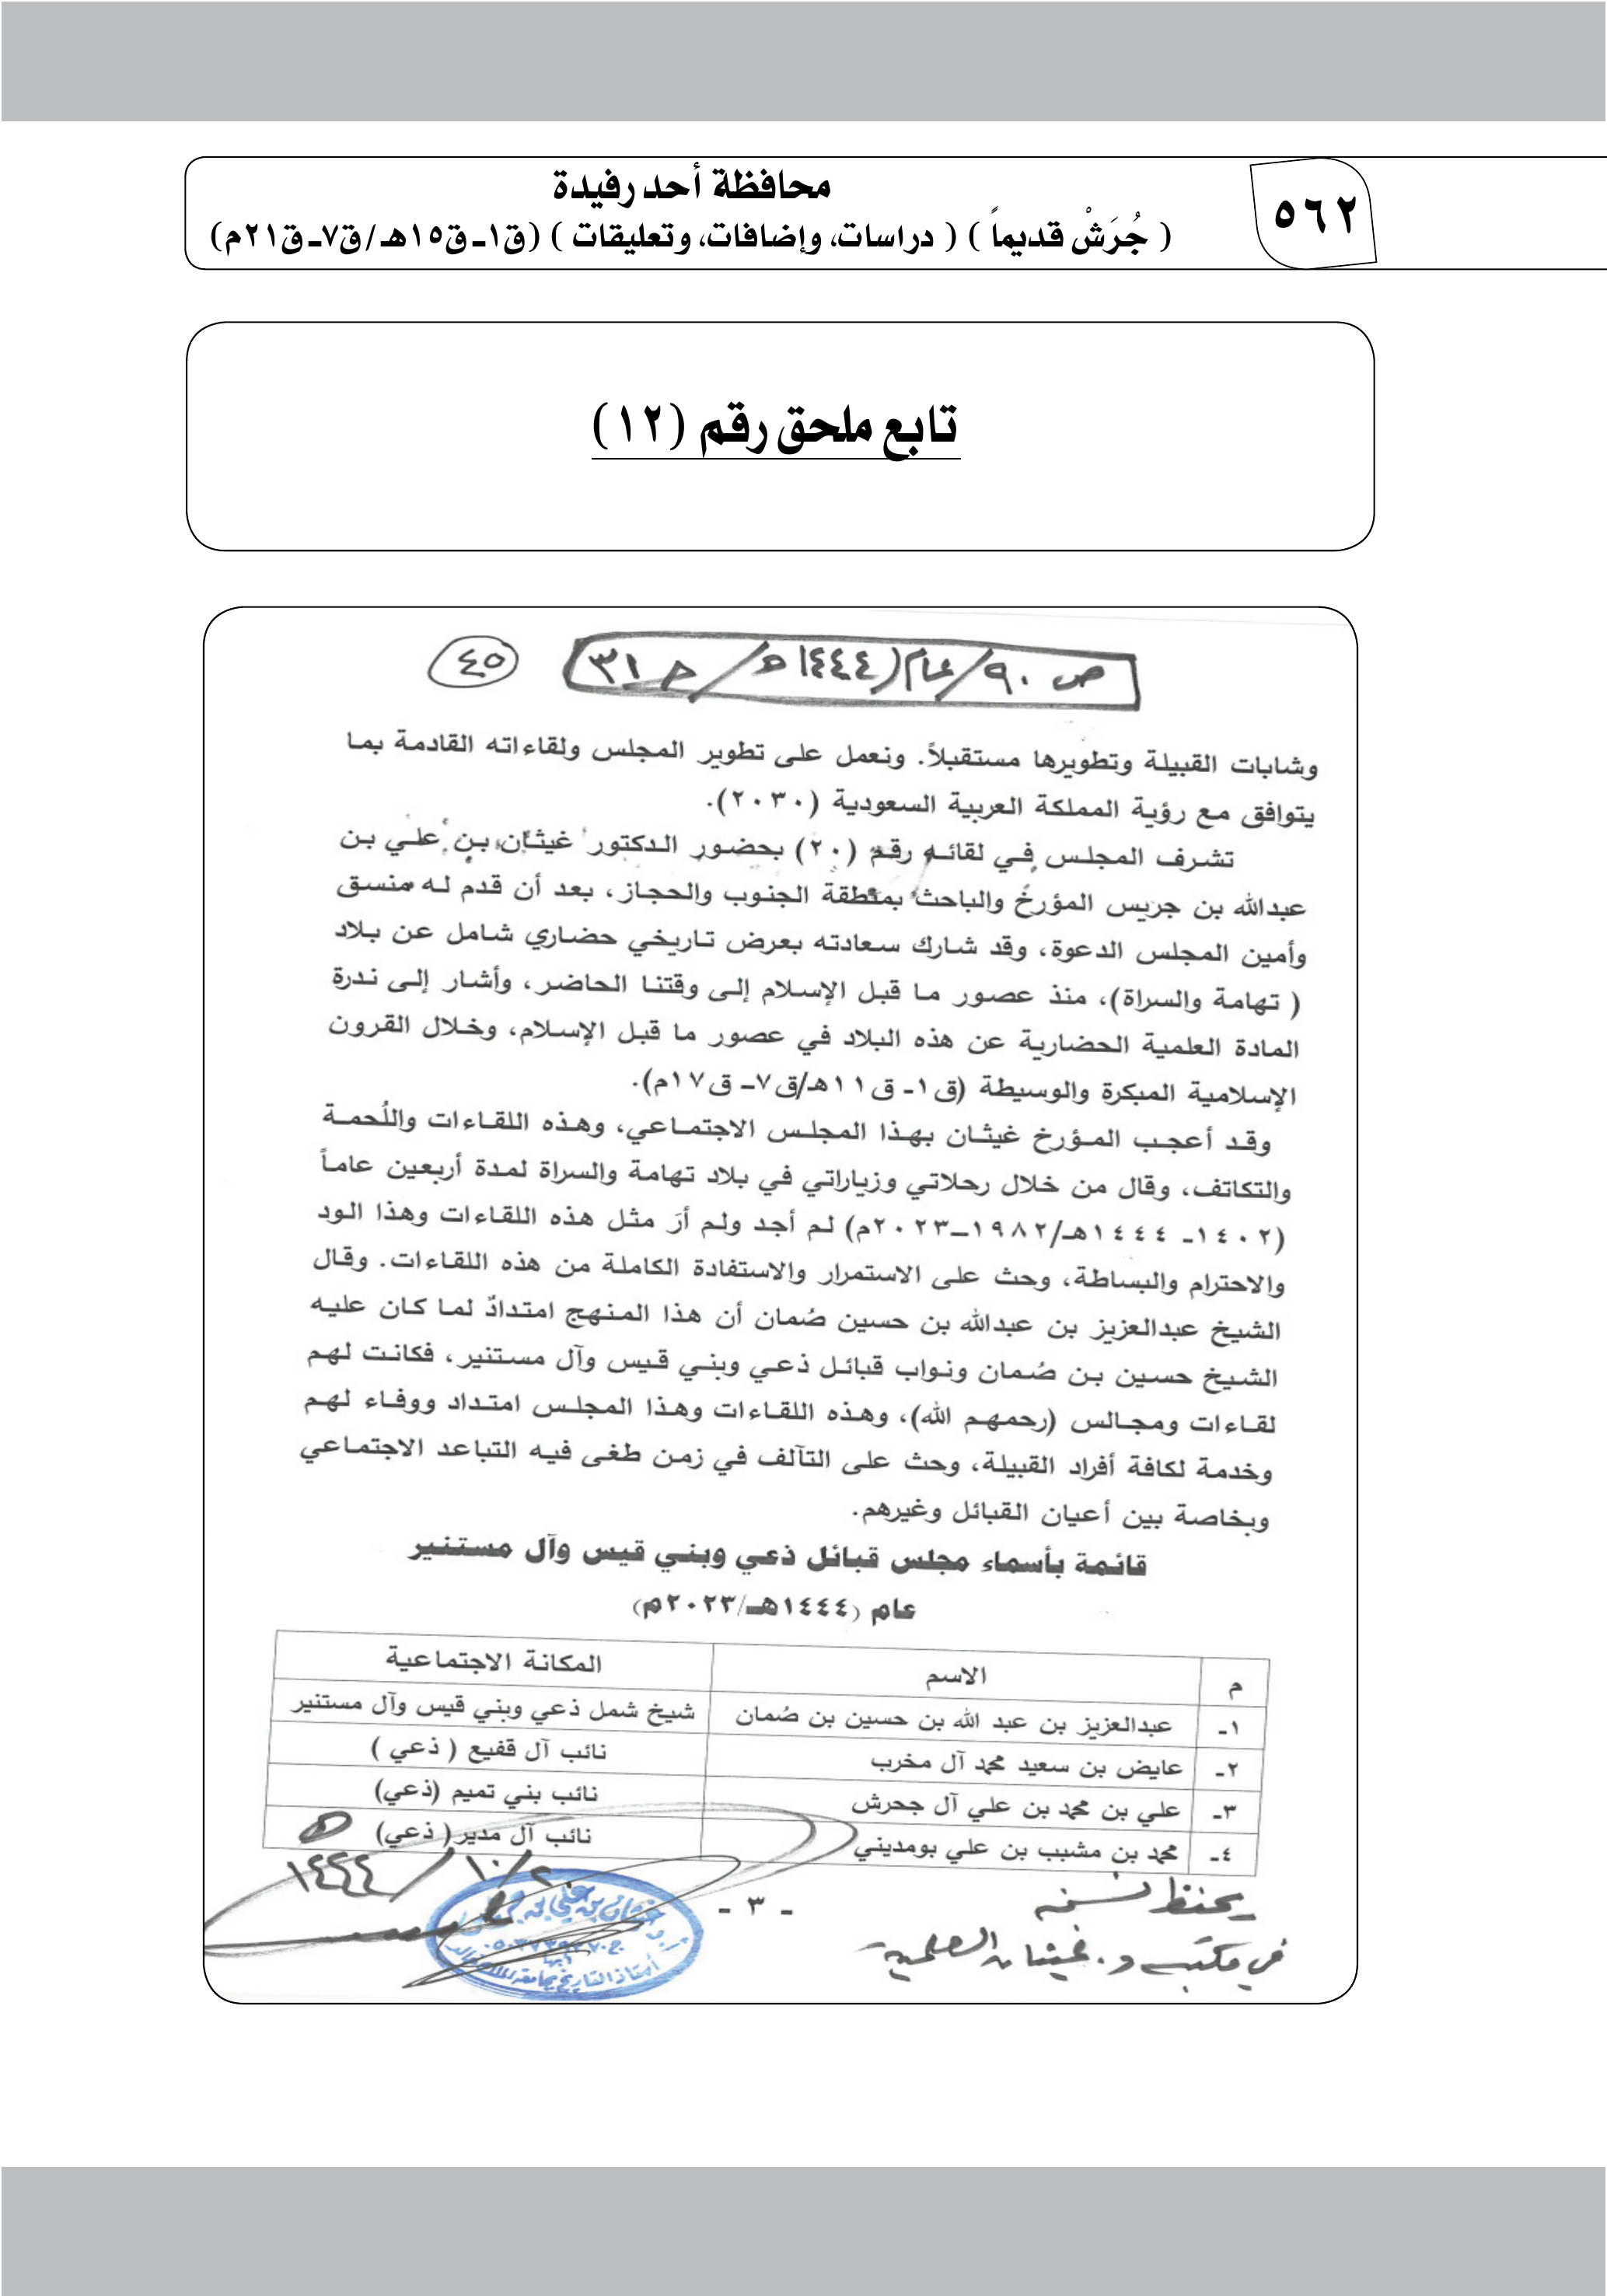 ٥٦٢
محافظة أحد رفيدة
( جُرَشْ قديماً ) ( دراسات، وإضافات، وتعليقات ) (ق١ـ ق١٥هـ / ق٧ـ ق٢١م)
تابع ملحق رقم (١٢)
ص ٩٠ / عام ( ١٤٤٤هـ / م ٣١
٤٥
وشابات القبيلة وتطويرها مستقبلاً. ونعمل على تطوير المجلس ولقاءاته القادمة بما
يتوافق مع رؤية المملكة العربية السعودية (٢٠٣٠).
تشرف المجلس في لقائه رقم (٢٠) بحضور الدكتور غيثان بن علي بن
عبدالله بن جريس المؤرخ والباحث بمنطقة الجنوب والحجاز، بعد أن قدم له منسق
وأمين المجلس الدعوة، وقد شارك سعادته بعرض تاريخي حضاري شامل عن بلاد
( تهامة والسراة)، منذ عصور ما قبل الإسلام إلى وقتنا الحاضر، وأشار إلى ندرة
المادة العلمية الحضارية عن هذه البلاد في عصور ما قبل الإسلام، وخلال القرون
الإسلامية المبكرة والوسيطة (ق١- ق١١هـ/ق٧- ق١٧م).
وقد أعجب المؤرخ غيثان بهذا المجلس الاجتماعي، وهذه اللقاءات واللُحمة
والتكاتف، وقال من خلال رحلاتي وزياراتي في بلاد تهامة والسراة لمدة أربعين عاماً
(١٤٠٢- ١٤٤٤هـ/١٩٨٢–٢٠٢٣م) لم أجد ولم أرَ مثل هذه اللقاءات وهذا الود
والاحترام والبساطة، وحث على الاستمرار والاستفادة الكاملة من هذه اللقاءات. وقال
الشيخ عبدالعزيز بن عبدالله بن حسين صُمان أن هذا المنهج امتدادٌ لما كان عليه
الشيخ حسين بن صُمان ونواب قبائل ذعي وبني قيس وآل مستنير، فكانت لهم
لقاءات ومجالس (رحمهم الله)، وهذه اللقاءات وهذا المجلس امتداد ووفاء لهم
وخدمة لكافة أفراد القبيلة، وحث على التآلف في زمن طغى فيه التباعد الاجتماعي
وبخاصة بين أعيان القبائل وغيرهم.
قائمة بأسماء مجلس قبائل ذعي وبني قيس وآل مستنير
عام (١٤٤٤هـ/٢٠٢٣م)
م الاسم المكانة الاجتماعية
١- عبدالعزيز بن عبد الله بن حسين بن صُمان شيخ شمل ذعي وبني قيس وآل مستنير
٢- عايض بن سعيد محمد آل مخرب نائب آل قفيع ( ذعي )
٣- علي بن محمد بن علي آل جحرش نائب بني تميم (ذعي)
٤- محمد بن مشبب بن علي بومديني نائب آل مدير( ذعي)
١٤٤٤/١٠/٢
- ٣ -
يحفظ نسخه
في مكتبة د. غيثان العلمية
أستاذ التاريخ بجامعة الملك خالد
أبها